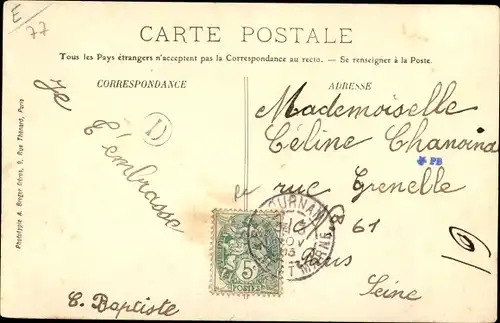 E/77
CARTE POSTALE
Tous les Pays étrangers n'acceptent pas la Correspondance au recto. — Se renseigner à la Poste.
CORRESPONDANCE
ADRESSE
Phototypie A. Breger frères, 9, Rue Thénard, Paris
Je
t'embrasse
D
C. Baptiste
Mademoiselle
Céline
PB
rue Grenelle
61
Paris
Seine
TOURNAN
NOV
ET MARNE
5c
POSTES